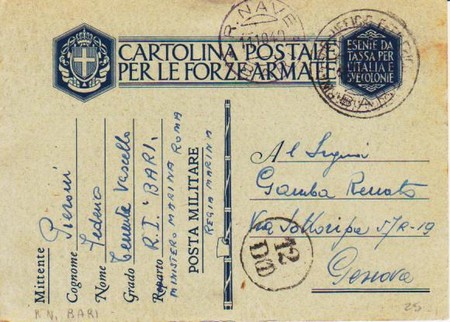 CARTOLINA POSTALE
PER LE FORZE ARMATE
ESENTE DA
TASSA PER
L'ITALIA E
SVE COLONIE
R. NAVE
BARI
Mittente
Cognome Pieroni
Nome Federico
Grado Tenente Vascello
Reparto R.I. "BARI"
MINISTERO MARINA ROMA
POSTA MILITARE
REGIA MARINA
Al Signor
Gamba Renato
Via Sottoripa 57R-19
Genova
12
DD
R.N. BARI
25